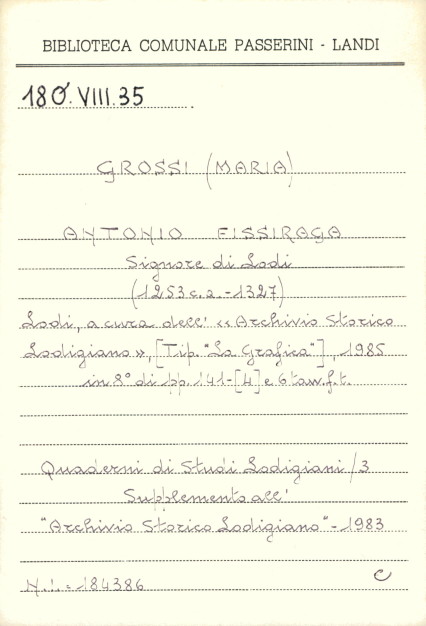 BIBLIOTECA COMUNALE PASSERINI - LANDI
180´.VIII.35
GROSSI (MARIA)
ANTONIO FISSIRAGA
Signore di Lodi
(1253 c.a. - 1327)
Lodi, a cura dell' «Archivio Storico
Lodigiano», [Tip. "La Grafica"], 1985
in 8° di pp. 141-[4] e 6 tav.f.t.
Quaderni di Studi Lodigiani / 3
Supplemento all'
"Archivio Storico Lodigiano" - 1983
N.i. = 184386
C